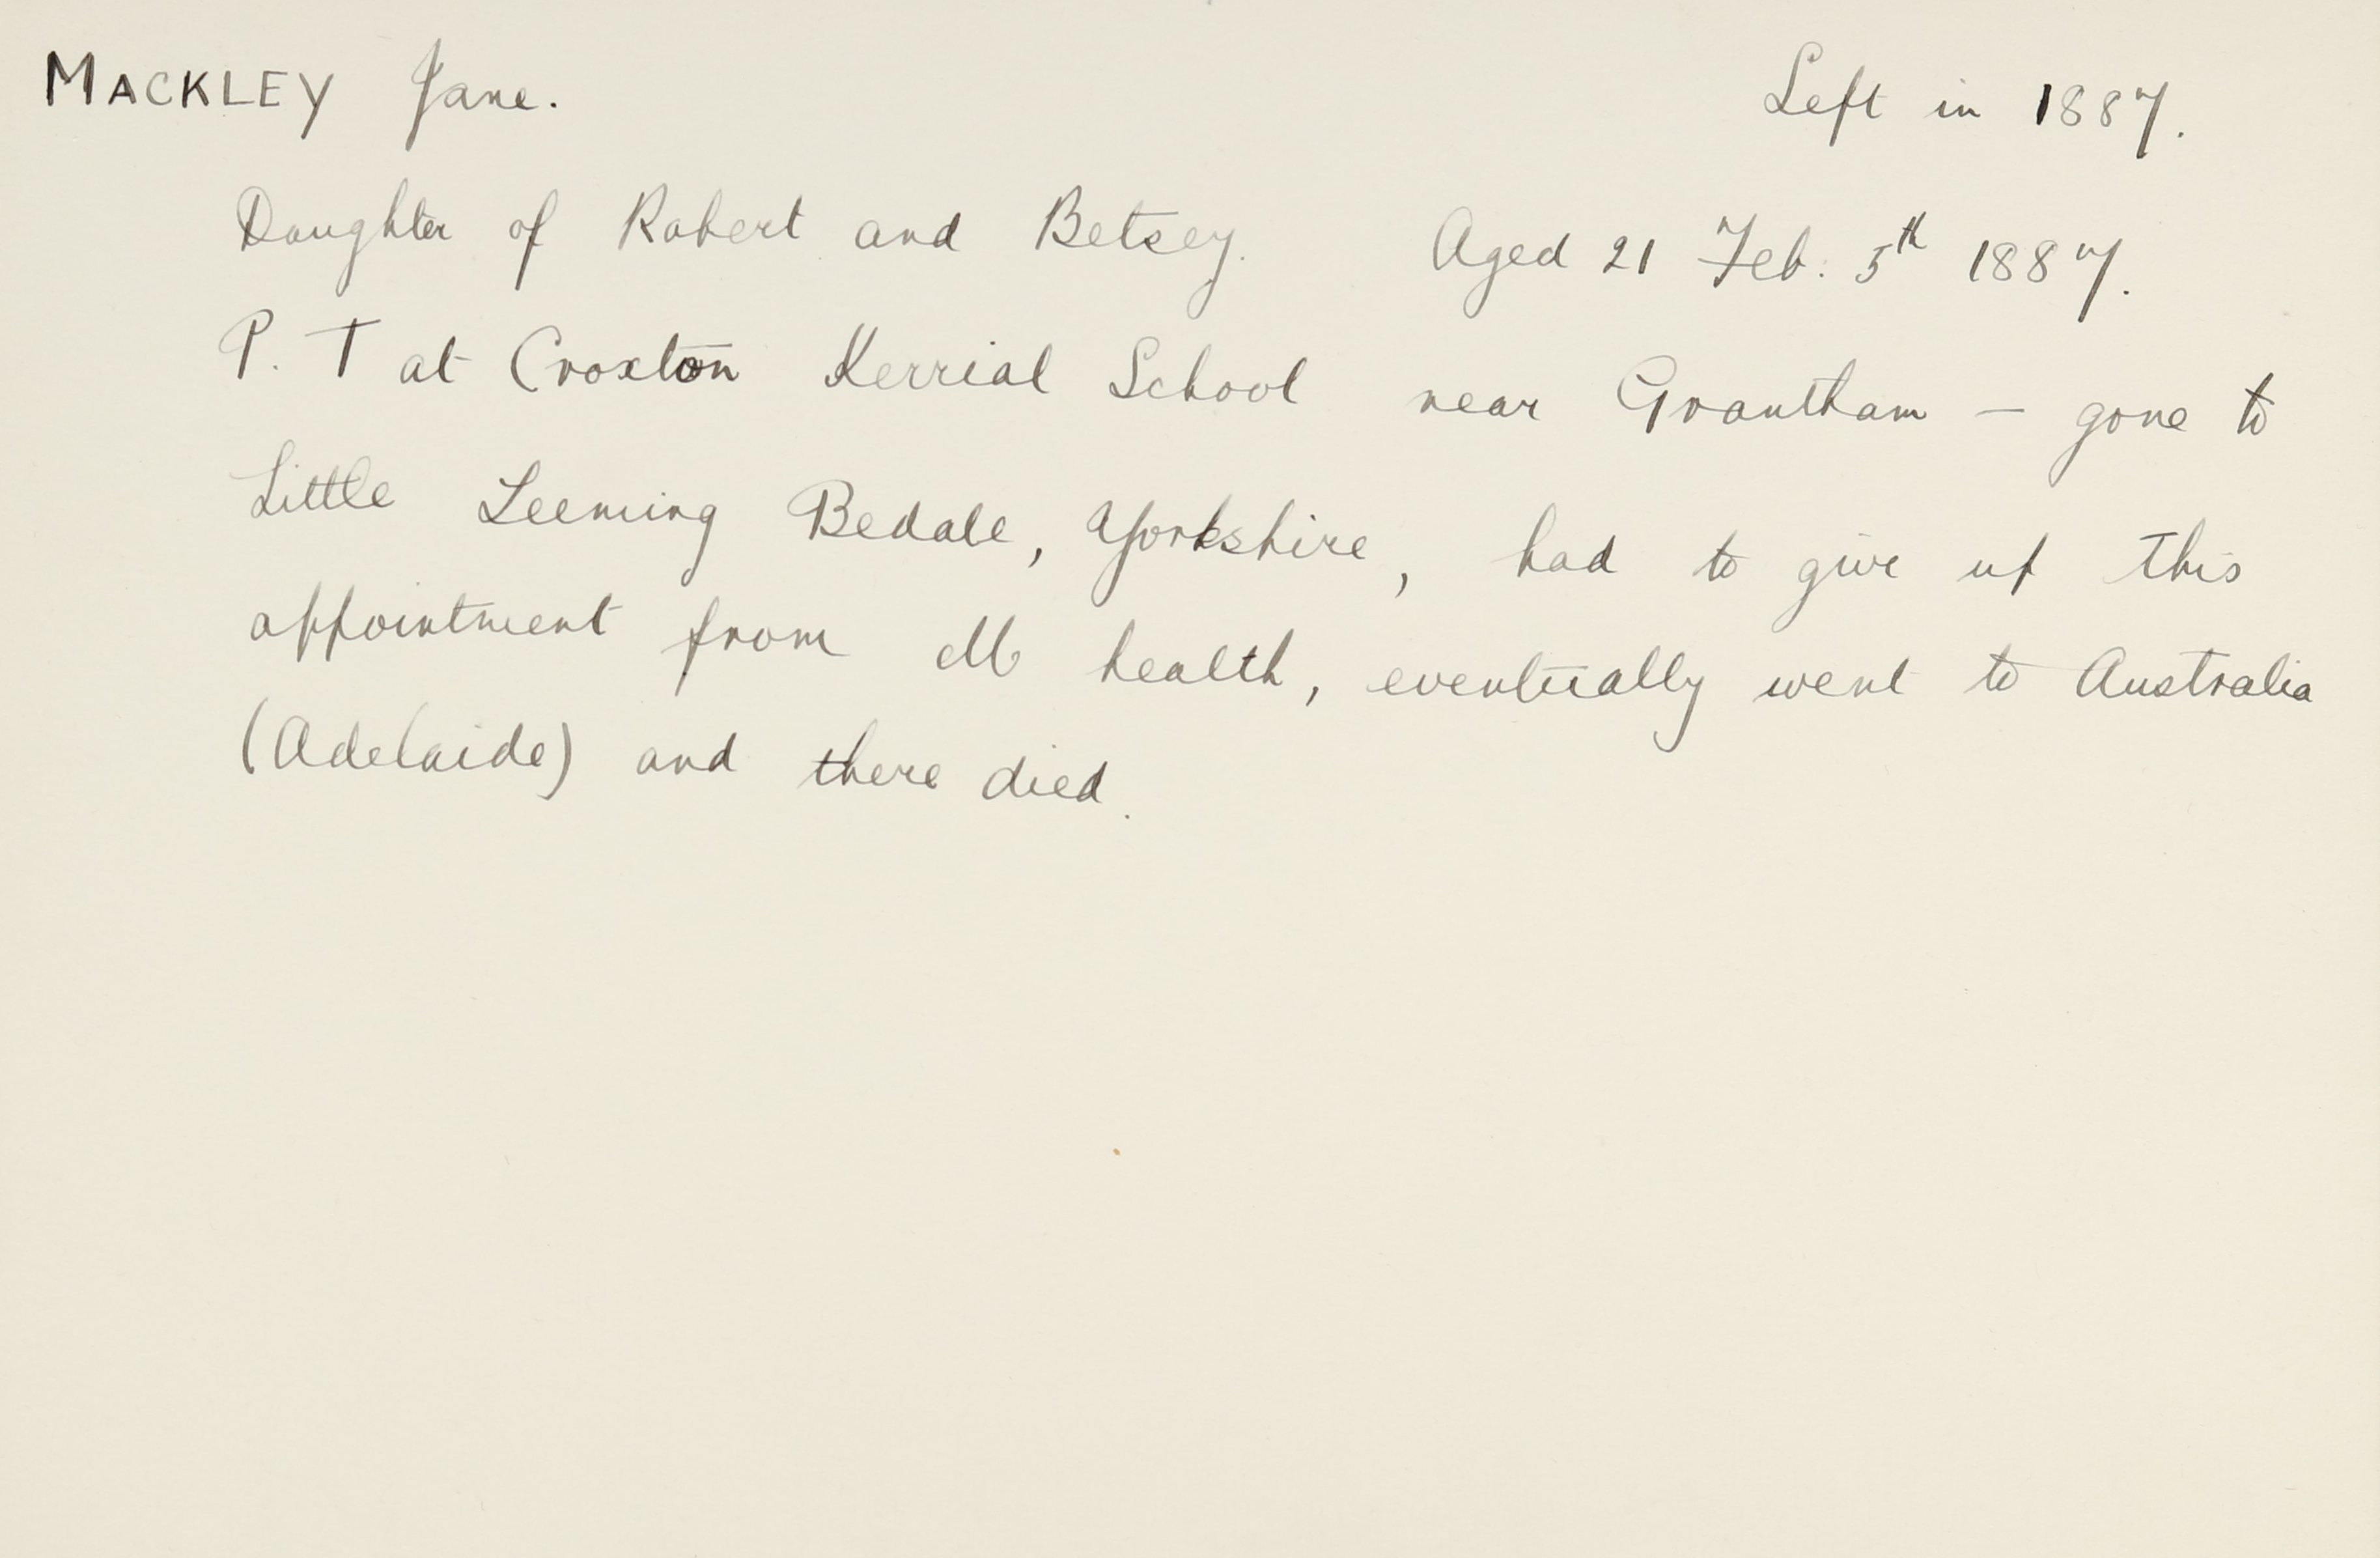 MACKLEY Jane. Left in 1887.
Daughter of Robert and Betsey. Aged 21 Feb. 5th 1887.
P. T at Croxton Kerrial School near Grantham — gone to
Little Leeming Bedale, Yorkshire, had to give up this
appointment from ill health, eventually went to Australia
(Adelaide) and there died.